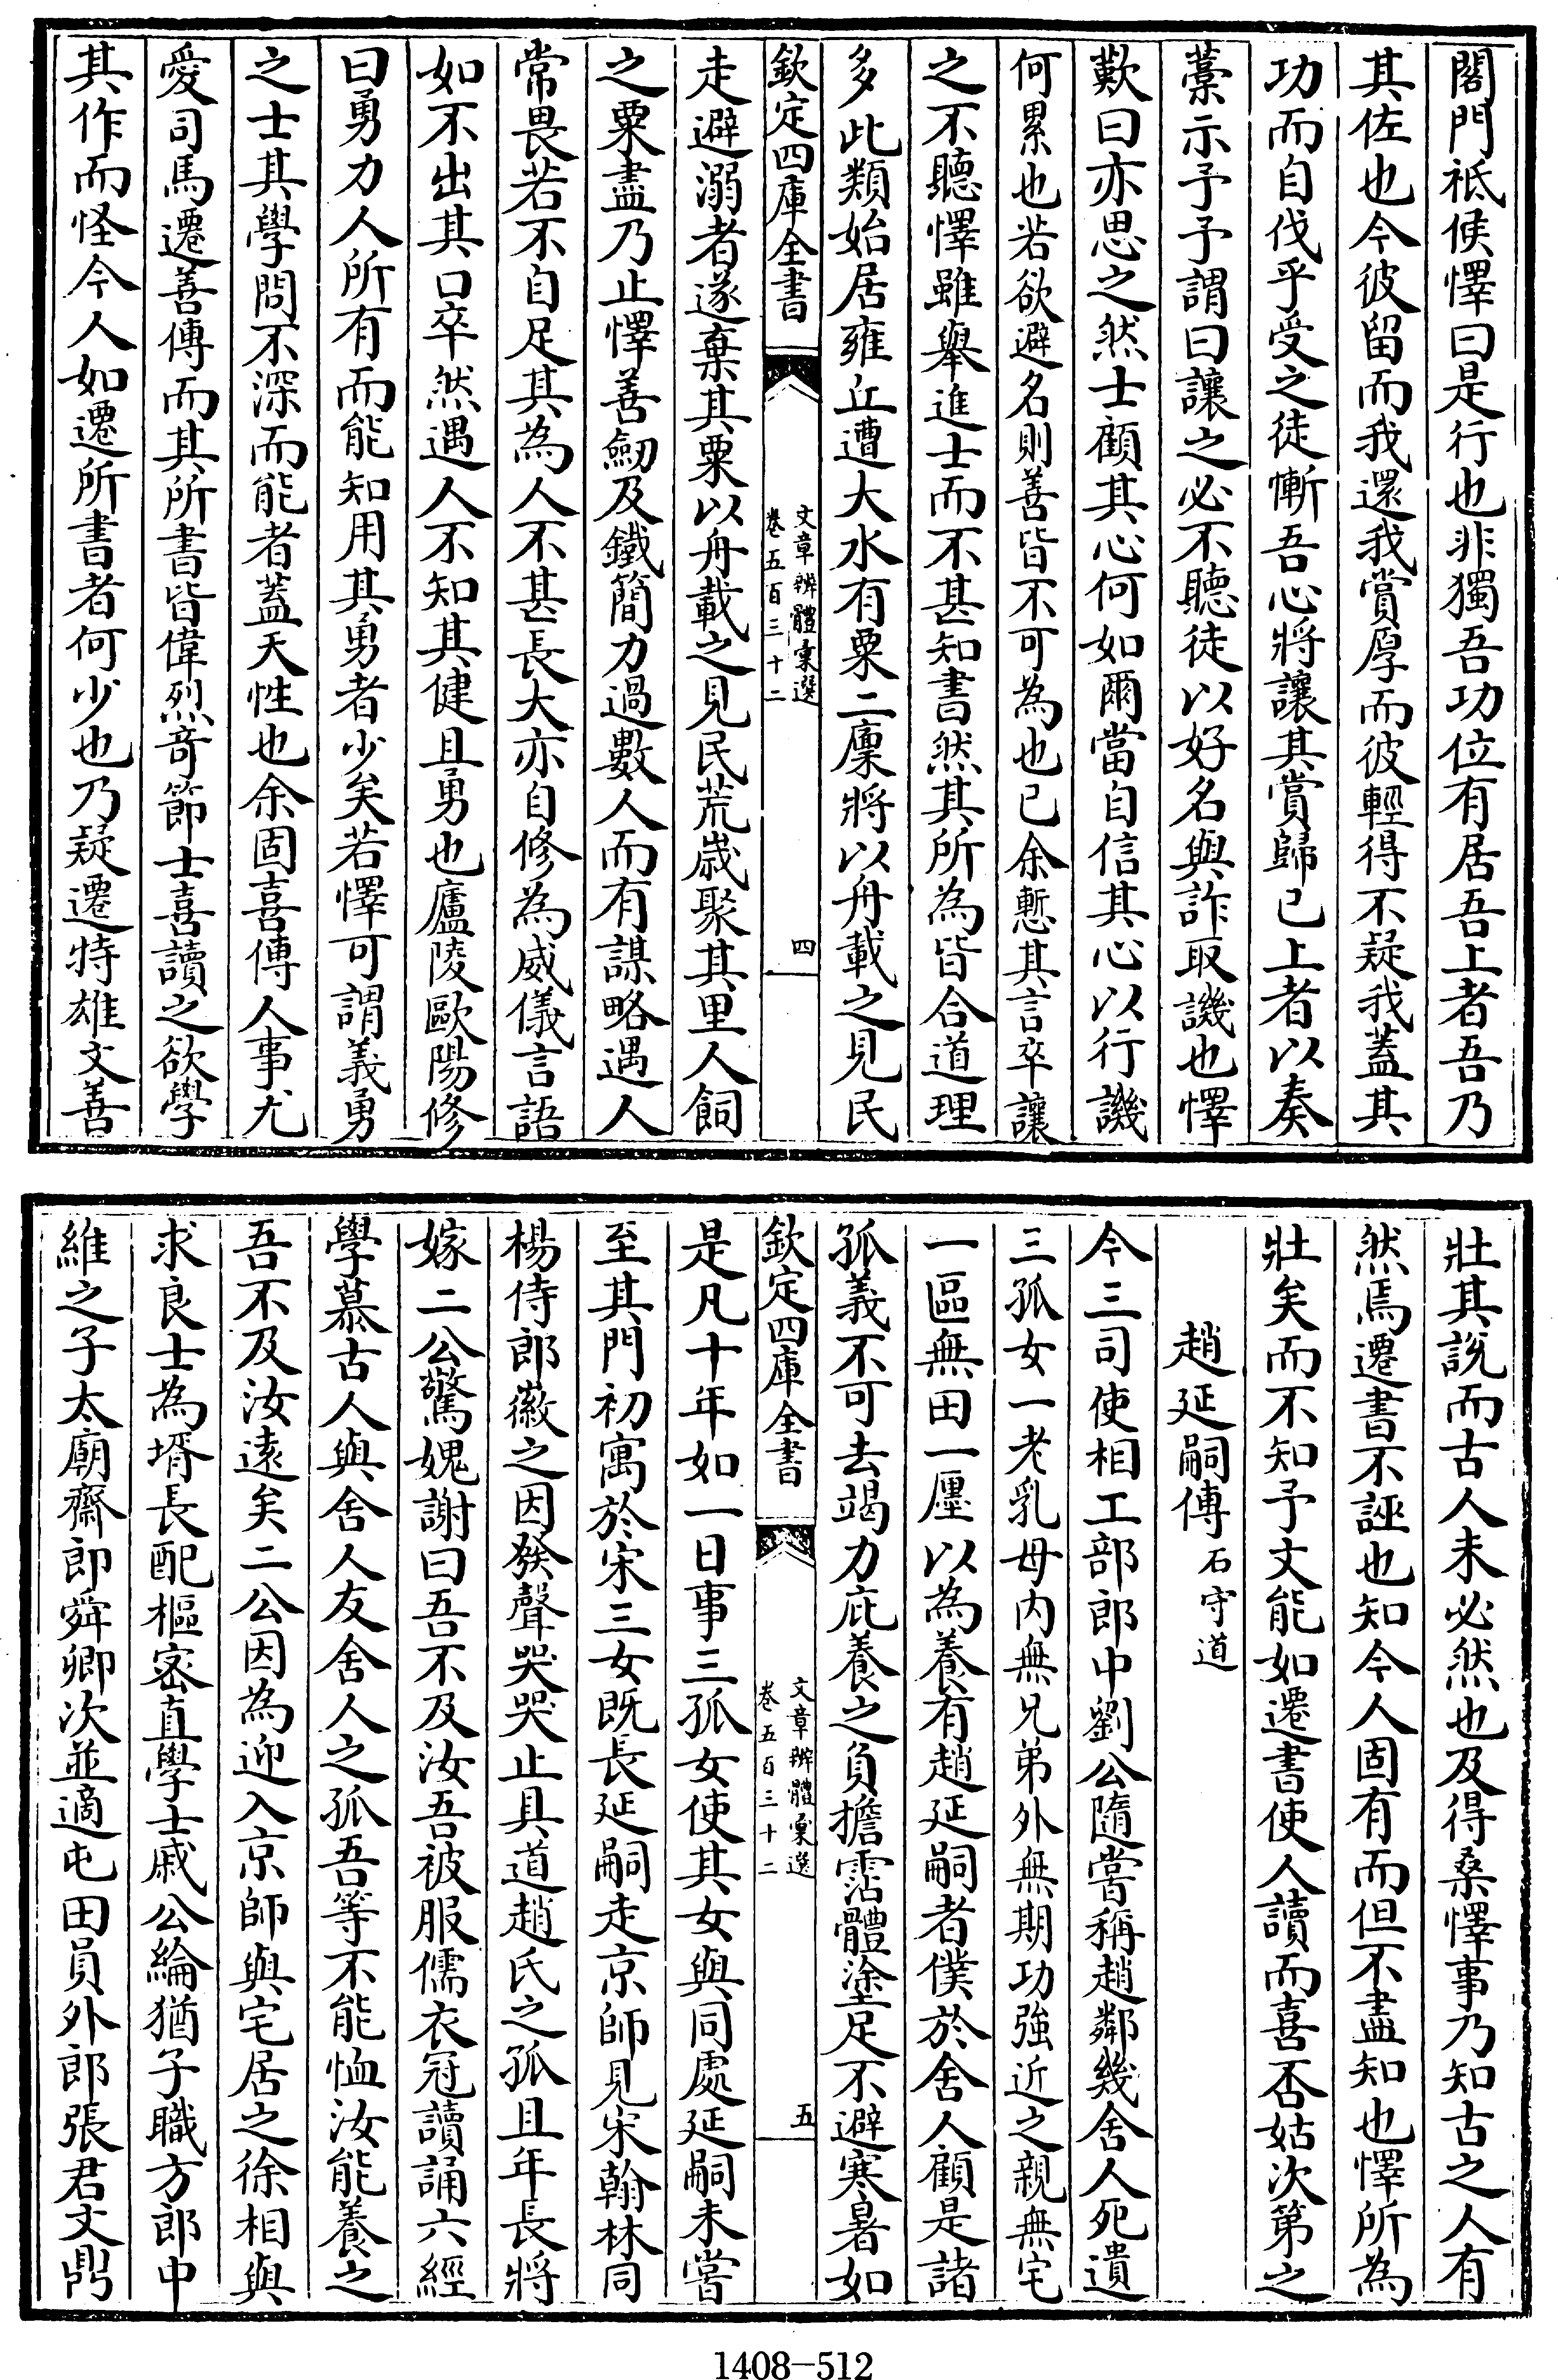 閤門祗候懌曰是行也非獨吾功位有居吾上者吾乃
其佐也今彼留而我還我賞厚而彼輕得不疑我蓋其
功而自伐乎受之徒慚吾心將讓其賞歸已上者以奏
藁示予予謂曰讓之必不聽徒以好名與詐取譏也懌
歎曰亦思之然士顧其心何如爾當自信其心以行譏
何累也若欲避名則善皆不可為也已余慙其言卒讓
之不聽懌雖舉進士而不甚知書然其所為皆合道理
多此類始居雍丘遭大水有粟二廩將以舟載之見民
欽定四庫全書
文章辨體彙選
卷五百三十二
四
走避溺者遂棄其粟以舟載之見民荒歲聚其里人飼
之粟盡乃止懌善劒及鐵簡力過數人而有謀略遇人
常畏若不自足其為人不甚長大亦自修為威儀言語
如不出其口卒然遇人不知其健且勇也廬陵歐陽修
曰勇力人所有而能知用其勇者少矣若懌可謂義勇
之士其學問不深而能者蓋天性也余固喜傳人事尤
愛司馬遷善傳而其所書皆偉烈奇節士喜讀之欲學
其作而怪今人如遷所書者何少也乃疑遷特雄文善
壯其說而古人未必然也及得桑懌事乃知古之人有
然焉遷書不誣也知今人固有而但不盡知也懌所為
壯矣而不知予文能如遷書使人讀而喜否姑次第之
趙延嗣傳 石守道
今三司使相工部郎中劉公隨嘗稱趙鄰幾舍人死遺
三孤女一老乳母內無兄弟外無期功強近之親無宅
一區無田一廛以為養有趙延嗣者僕於舍人顧是諸
孤義不可去竭力庇養之負擔霑體塗足不避寒暑如
欽定四庫全書
文章辨體彙選
卷五百三十二
五
是凡十年如一日事三孤女使其女與同處延嗣未嘗
至其門初寓於宋三女既長延嗣走京師見宋翰林同
楊侍郎徽之因發聲哭哭止具道趙氏之孤且年長將
嫁二公驚媿謝曰吾不及汝吾被服儒衣冠讀誦六經
學慕古人與舍人友舍人之孤吾等不能恤汝能養之
吾不及汝遠矣二公因為迎入京師與宅居之徐相與
求良士為壻長配樞密直學士戚公綸猶子職方郎中
維之子太廟齋郎舜卿次並適屯田員外郎張君文鼎
1408-512